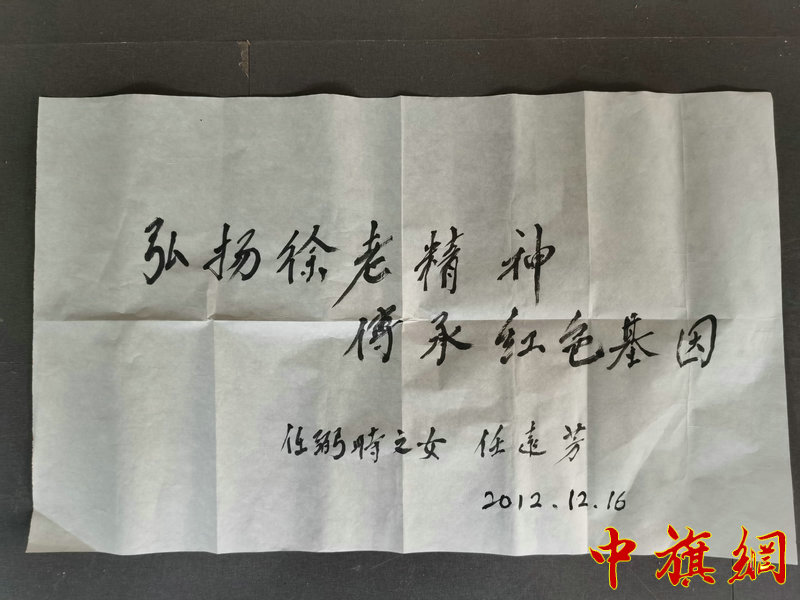 弘扬徐老精神
傳承红色基因
任弼時之女 任遠芳
2012.12.16
中旗網